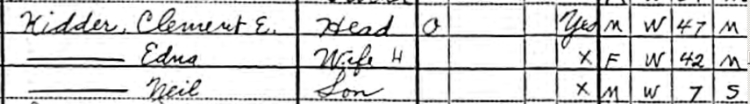 Kidder, Clement E. Head O Yes M W 47 M
Edna Wife H X F W 42 M
Neil Son X M W 7 S